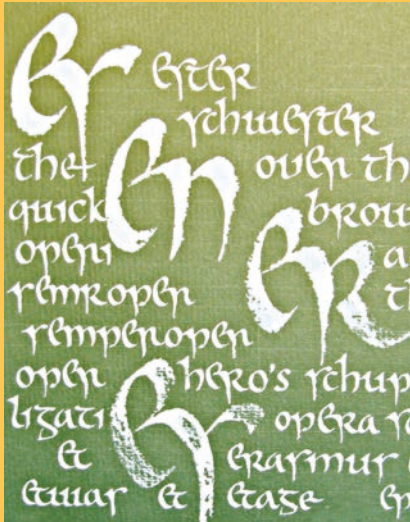 es ester
schwester
the en oven th
quick brow
openi er a
semropen t
sempenopen
open hero's schup
ligati es opera s
et erasmus
etwas et etage